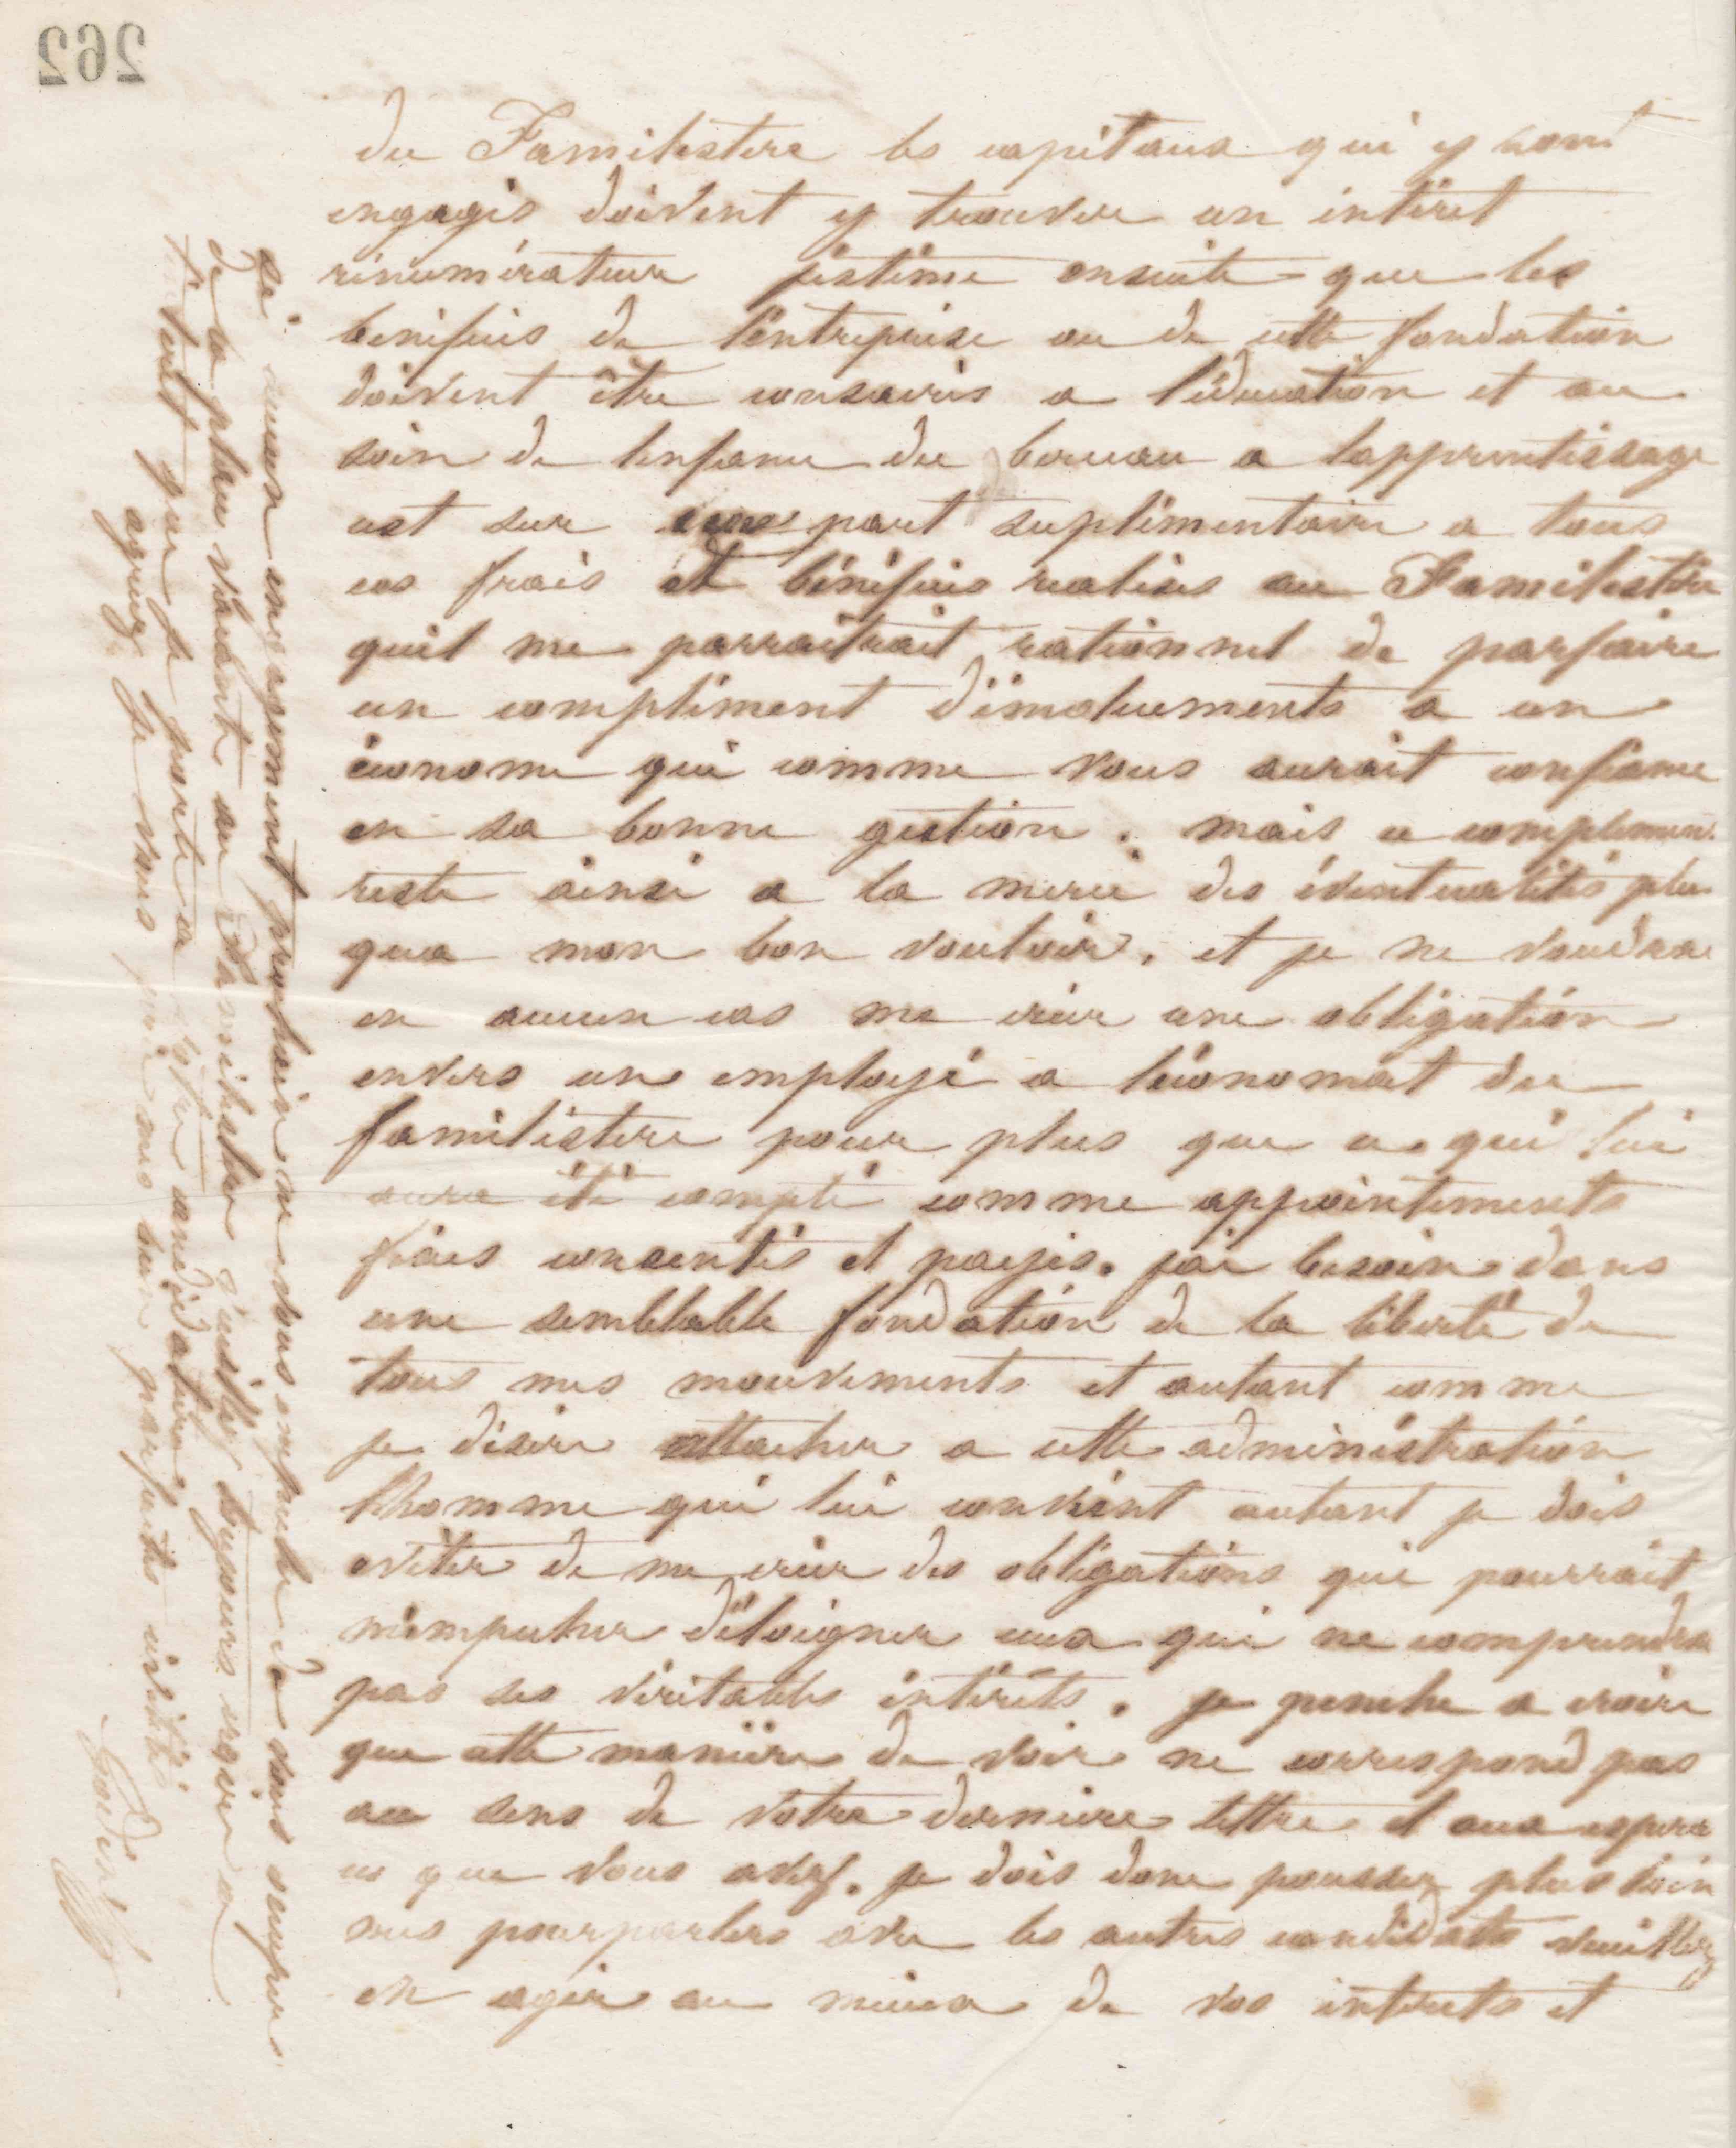 262
du Familistere les capitaux qui y sont
engagés doivent y trouver un intéret
rénumérateur jéstime ensuite que les
benifices de l'entreprise ou de cette fondation
doivent être consacrés a l'éducation et au
soin de lenfance du berceau a lapprentissage
cest sur une part suplémentaire a tous
ces frais et bénéfices realisés au Familistère
quil me parraitrait rationnel de parfaire
un compliment d'émoluements a un
économe qui comme vous aurait confiance
en sa bonne gestion. mais ce complement
reste ainsi a la merci des éventualités plus
qua mon bon vouloir, et je ne voudrai
en aucun cas me créer une obligation
envers un employé a léconomat du
familistere pour plus que ce qui lui
aura été compté comme appointements
fixes consentis et payés. jai besoin dans
une semblable fondation de la liberté de
tous mes mouvements et autant comme
je désire attacher a cette administration
lhomme qui lui convient autant je dois
eviter de me créer des obligations qui pourrait
mempecher d'éloigner ceux qui ne comprendra
pas ses véritables intérêts. je penche a croire
que cette manière de voir ne correspond pas
au sens de votre derniere lettre et aux espéran
ces que vous avez. je dois donc pousser plus loin
mes pourparlers avec les autres candidats veuillez
en agir au mieux de vos intérets et
si aucun engagement prochain ne vous empeche de vous occuper
de la place vacante au Familistere veuillez toujours croire a
l'intéret que je porte a votre candidature
agréez je vous prie mes bien parfaites civilités
Godin